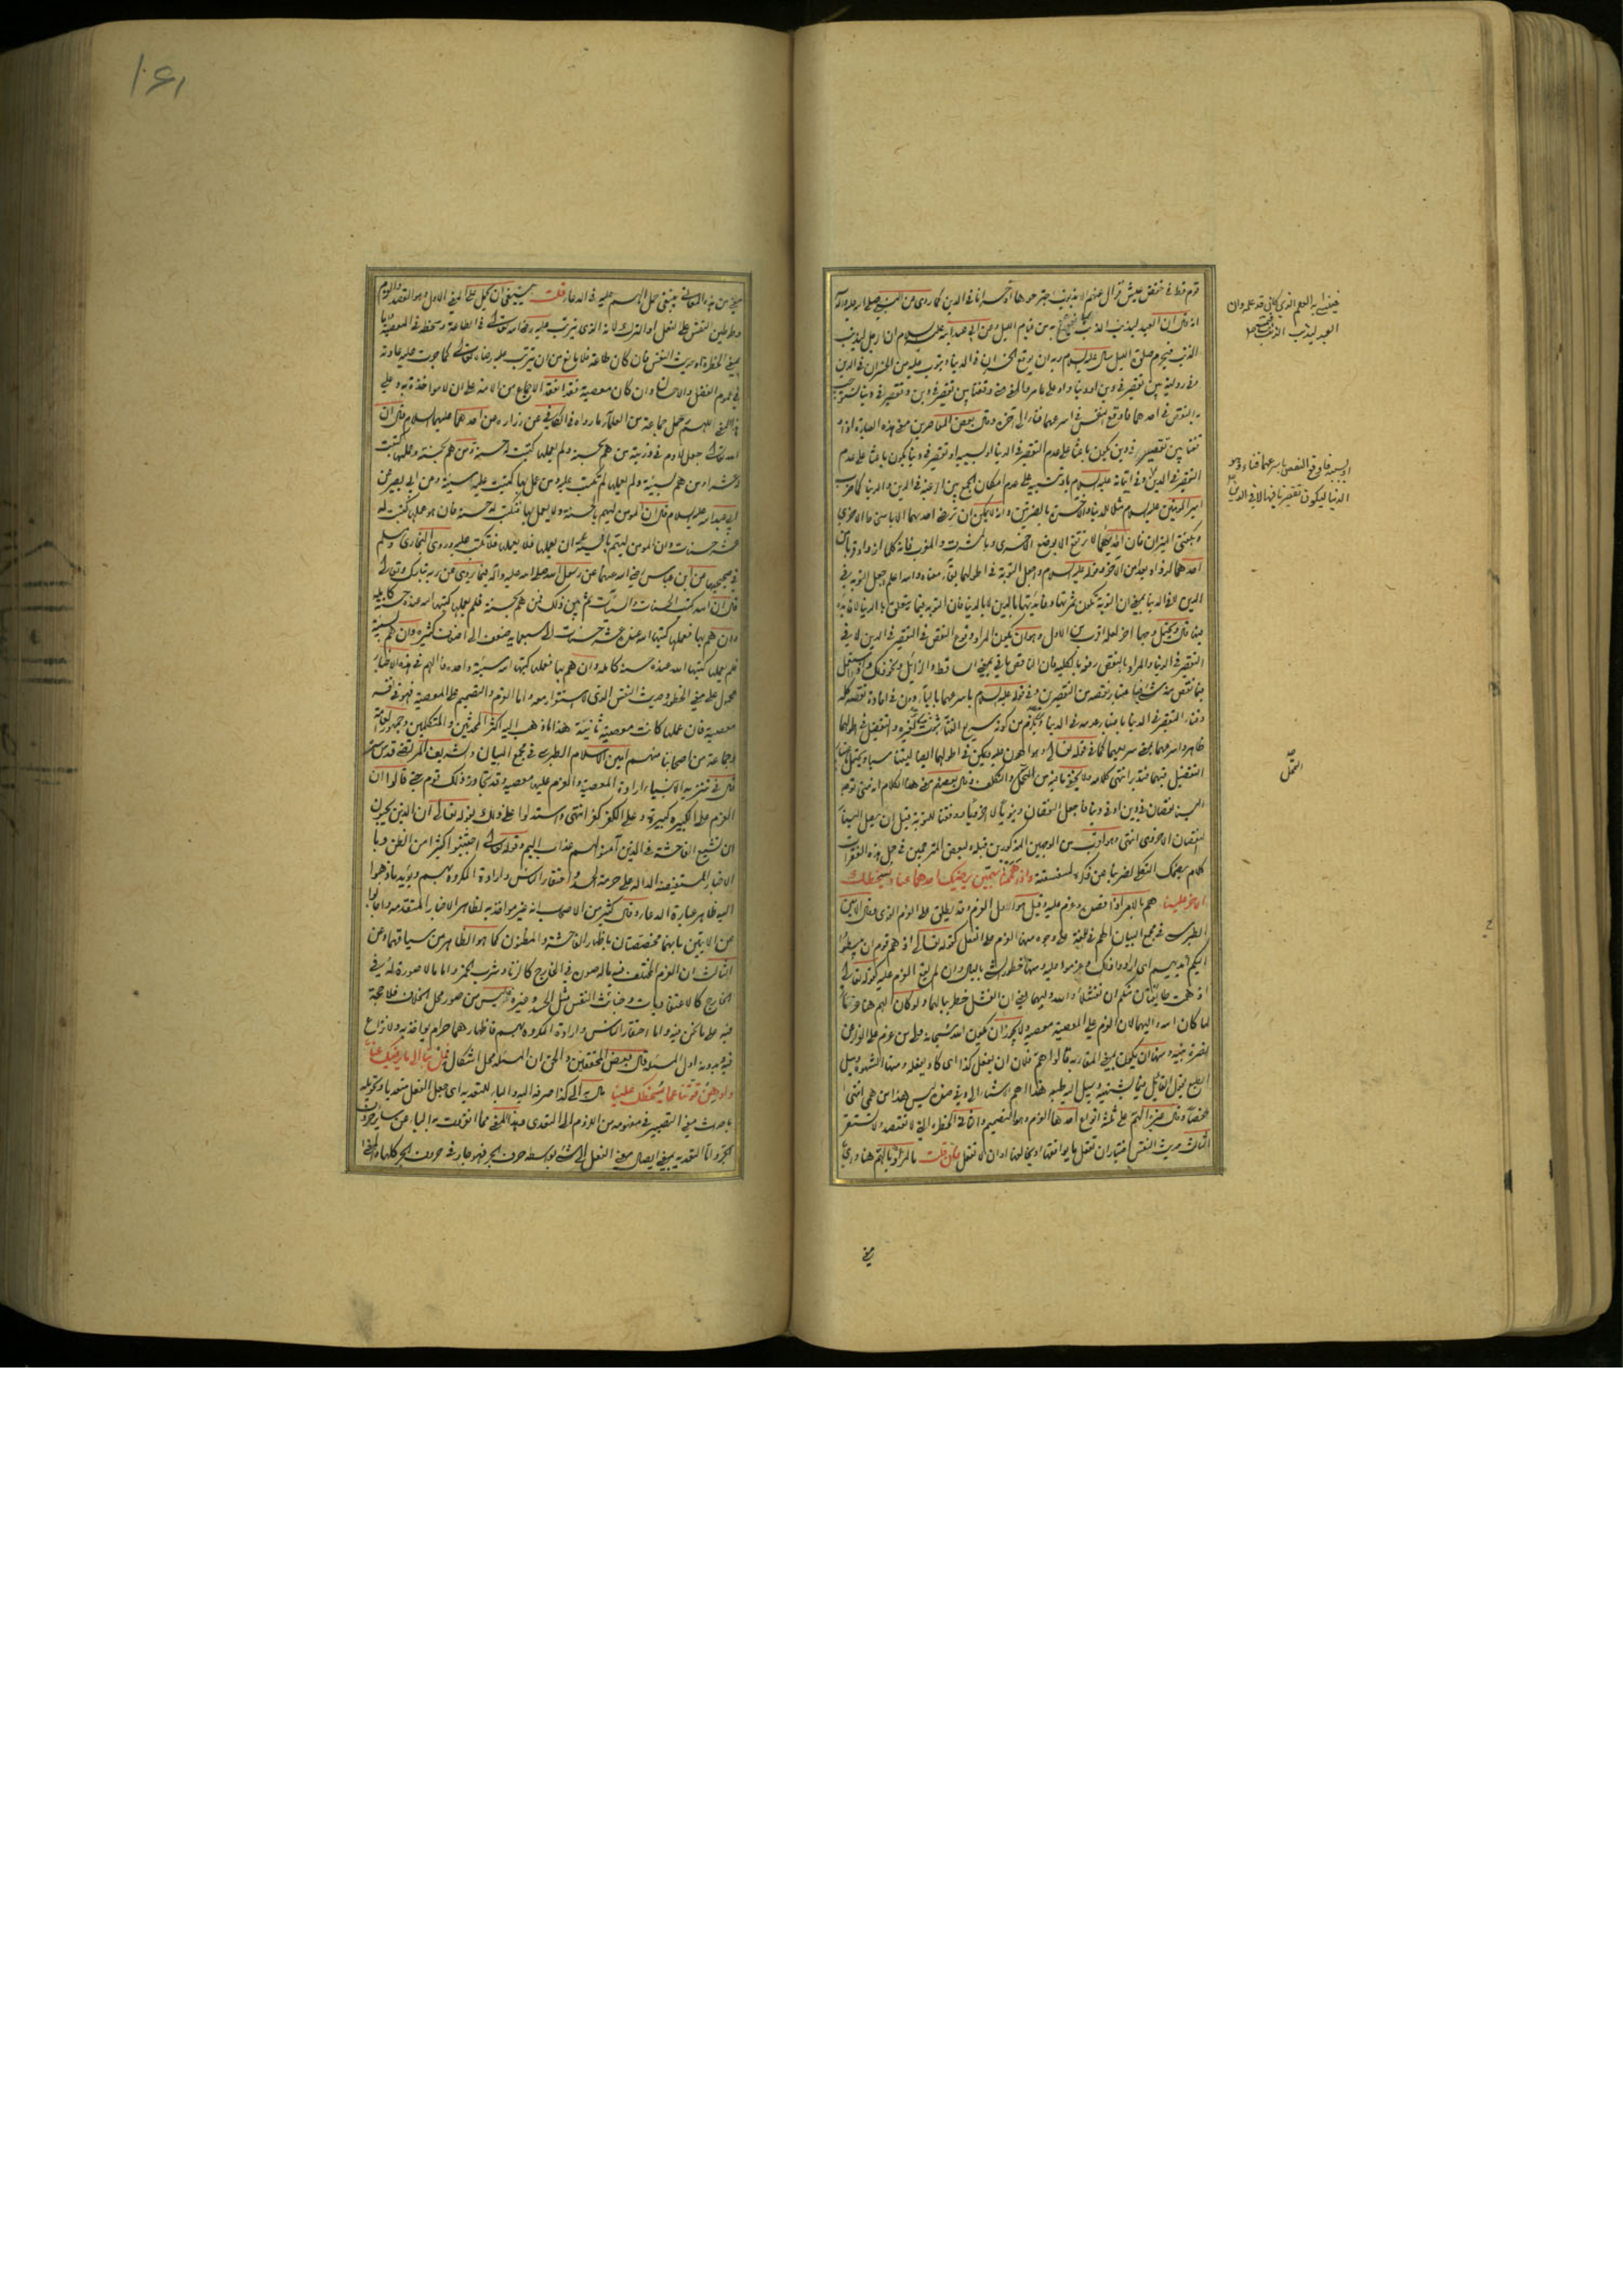 قوم قط في خفض عيش فزال عنهم الا بذنوب اجترحوها او خسرانا في الدين كما روى عن النبي صلى الله عليه وآله
انه قال ان العبد ليذنب الذنب به من قيام الليل وعن ابي عبد الله عليه السلام ان الرجل ليذنب
الذنب فيحرم صلوة الليل سال عليه السلام ربه ان يوقع الخسران في الدنيا ويتوب عليه من الخسران في الدين
به النقص في احدهما فاوقع النقص في اسرعهما فناء الى اخره وقال بعض المعاصرين معنى هذه العبارة اذا
وقفنا بين تقصير في دين يكون باعثا على عدم التقصير في الدنيا او لسببه او تقصير في دنيا يكون باعثا على عدم
التقصير في الدين وفي اتيانه عليه السلام تنبيه على عدم امكان الجمع بين الرغبة في الدين والدنيا كما ضرب
امير المؤمنين عليه السلام مثلا للدنيا والاخرة بالضرتين وانه لا يمكن ان ترضى احدهما الا بما
وبكفتي الميزان فان احديهما لا ترتفع الا بوضع الاخرى وبالمشرق والمغرب فانه كلما ازداد قربا من
احدهما ازداد بعدا من الآخر وقوله عليه السلام واجعل التوبة في اطولهما بقاء معناه والله اعلم اجعل التوبة في
الدين لا في الدنيا بمعنى ان التوبة تكون ثمرتها وفايدتها بالدين لا بالدنيا فان التوبة فيما يتعلق بالدنيا لا فايدة
فيها قال ويحتمل وجها آخر لعله اقرب من الاول وهو ان يكون المراد وقوع النقص في التقصير في الدين لا في
التقصير في الدنيا والمراد بالنقص رفعه بالكلية
ظاهر واسرعهما بمعنى سريعهما كما في قوله تعالى وهو اهون عليه ويمكن في اطولهما ايضا
التفضيل فيهما فتدبر انتهى كلامه ولا يخفى ما فيه من التمحل والتكلف وقال بعضهم معنى هذا الكلام انه متى توجه
الينا نقصان في دين او في دنيا فاجعل النقصان دنيويا لا اخرويا ووفقنا للتوبة قبل ان يصل الينا
النقصان الاخروي انتهى وهو اقرب من الوجهين المذكورين قبله ولبعض المترجمين في حل هذه الفقرات
كلام يضحك الثكلى اضربنا عن ذكره لسفسفته واذا هممنا بهمين يرضيك احدهما عنا ويسخطك
الاخر علينا هم بالامر اذا قصده وعزم عليه وقيل هو اول العزم وقد يطلق على العزم القوي وقال امين
الطبرسي في مجمع البيان الهم في اللغة على وجوه منها العزم على الفعل كقوله تعالى اذ هم قوم ان يبسطوا
اليكم ايديهم اى ارادوا ذلك وعزموا عليه ومنها خطور الشيء بالبال وان لم يقع العزم عليه كقوله تعالى
اذ همت طائفتان منكم ان تفشلا والله وليهما يعني ان الفشل خطر ببالهما ولو كان الهم هنا عزما
لما كان الله وليهما لان العزم على المعصية معصية ولا يجوز ان يكون الله سبحانه ولى من عزم على الفرار عن
نصرة نبيه ومنها ان يكون بمعنى المقاربة قالوا هم فلان ان يفعل كذا اى كاد يفعله ومنها الشهوة وميل
الطبع يقول القائل فيما يشتهيه ويميل اليه طبعه هذا اهم الاشياء الي وفي ضده ليس هذا من همي انتهى
ملخصا وقال غيره الهم على ثلثة انواع احدها العزم وهو التصميم والثاني الخطرة التي لا تقصد ولا تستقر
الثالث حديث النفس اختيارا ان تفعل ما يوافقها او يخالفها او ان لا تفعل فان قلت ما المراد بالهم هنا واي
خفض ابه العلم الذي كان قد علمه وان
العبد ليذنب الذنب
او بسببه فاوقع النقص باسرعهما فناء وهو
الدنيا ليكون تقصيرنا فيها لا في الدين
التمحل
معنى
١٠٤١
معنى من هذه المعاني ينبغي حمل الهم عليه في الدعاء قلت ينبغي ان يحمل على المعنى الاول وهو القصد والعزم
وتوطين النفس على الفعل او الترك لانه الذي يترتب عليه رضاء الله تعالى في الطاعة وسخطه في المعصية واما
بمعنى الخطرة او حديث النفس فان كان طاعة فلا مانع من ان يترتب عليه رضاه تعالى كما جرت عليه عادته
في عموم الفضل والاحسان وان كان معصية فقد انعقد الاجماع من الامة على ان لا مؤاخذة به وعلى
هذا المعنى للهم حمل جماعة من العلماء ما رواه في الكافي عن زرارة عن احدهما عليهما السلام قال ان
الله تعالى جعل لآدم في ذريته من هم بحسنة ولم يعملها كتبت له حسنة ومن هم بحسنة وعملها كتبت
له عشرا ومن هم بسيئة ولم يعملها لم تكتب عليه ومن عمل بها كتبت عليه سيئة وعن ابي بصير عن
ابي عبد الله عليه السلام قال ان المؤمن ليهم بالحسنة ولا يعمل بها فتكتب له حسنة فان هو عملها كتبت له
عشر حسنات وان المؤمن ليهم بالسيئة ان يعملها فلا يعملها فلا تكتب عليه وروى البخاري ومسلم
في صحيحيهما عن ابن عباس رضي الله عنهما عن رسول الله صلى الله عليه وآله فيما يروى عن ربه تبارك وتعالى
قال ان الله كتب الحسنات والسيئات ثم بين ذلك فمن هم بحسنة فلم يعملها كتبها الله عنده حسنة كاملة
وان هم بها فعملها كتبها الله عنده عشر حسنات الى سبعمائة ضعف الى اضعاف كثيرة وان هم بسيئة
فلم يعملها كتبها الله عنده حسنة كاملة وان هم بها فعملها كتبها الله سيئة واحدة فالهم في هذه الاخبار
محمول على معنى الخطرة وحديث النفس الذي لا استقرار معه واما العزم والتصميم على المعصية فهو في نفسه
معصية فان عملها كانت معصية ثانية هذا ما ذهب اليه اكثر المحدثين والمتكلمين وجمهور العامة
وجماعة من اصحابنا منهم امين الاسلام الطبرسي في مجمع البيان والشريف المرتضى قدس سره
قال في تنزيه الانبياء ارادة المعصية والعزم عليها معصية وقد تجاوز ذلك قوم حتى قالوا ان
العزم على الكبيرة كبيرة وعلى الكفر كفر انتهى واستدلوا على ذلك بقوله تعالى ان الذين يحبون
ان تشيع الفاحشة في الذين آمنوا لهم عذاب اليم وقوله تعالى اجتنبوا كثيرا من الظن وبا
لاخبار المستفيضة الدالة على حرمة الحسد واحتقار الناس وارادة المكروه بهم ويؤيد ما ذهبوا
اليه ظاهر عبارة الدعاء وقال كثير من الاصحاب انه غير مواخذ به لظاهر الاخبار المتقدمة واجابوا
عن الايتين بانهما مخصصتان باظهار الفاحشة والمظنون كما هو الظاهر من سياقهما وعن
الثالث ان العزم المختلف فيه ما له صورة في الخارج كالزنا وشرب الخمر واما ما لا صورة له في
الخارج كالاعتقاديات وخبائث النفس مثل الحسد وغيره فليس من صور محل الخلاف فلا حجة
فيه على ما نحن فيه واما احتقار الناس وارادة المكروه بهم فاظهارهما حرام يواخذ به ولا نزاع
فيه وبدونه اول المسئلة وقال بعض المحققين والحق ان المسئلة محل اشكال فمل بنا الى ما يرضيك عنا
واوهن قوتنا عما يسخطك علينا مال به الى كذا صرفه اليه والباء للتعدية اى جعل الفعل متعديا وتحويله
باحداث معنى التصيير في مفهومه من اللزوم الى التعدي وهذا المعنى مما انفردت به الباء عن سائر حروف
الجر واما التعدية بمعنى ايصال معنى الفعل الى الشيء بواسطة حرف الجر فهو جار في حروف الجر كلها والمعنى